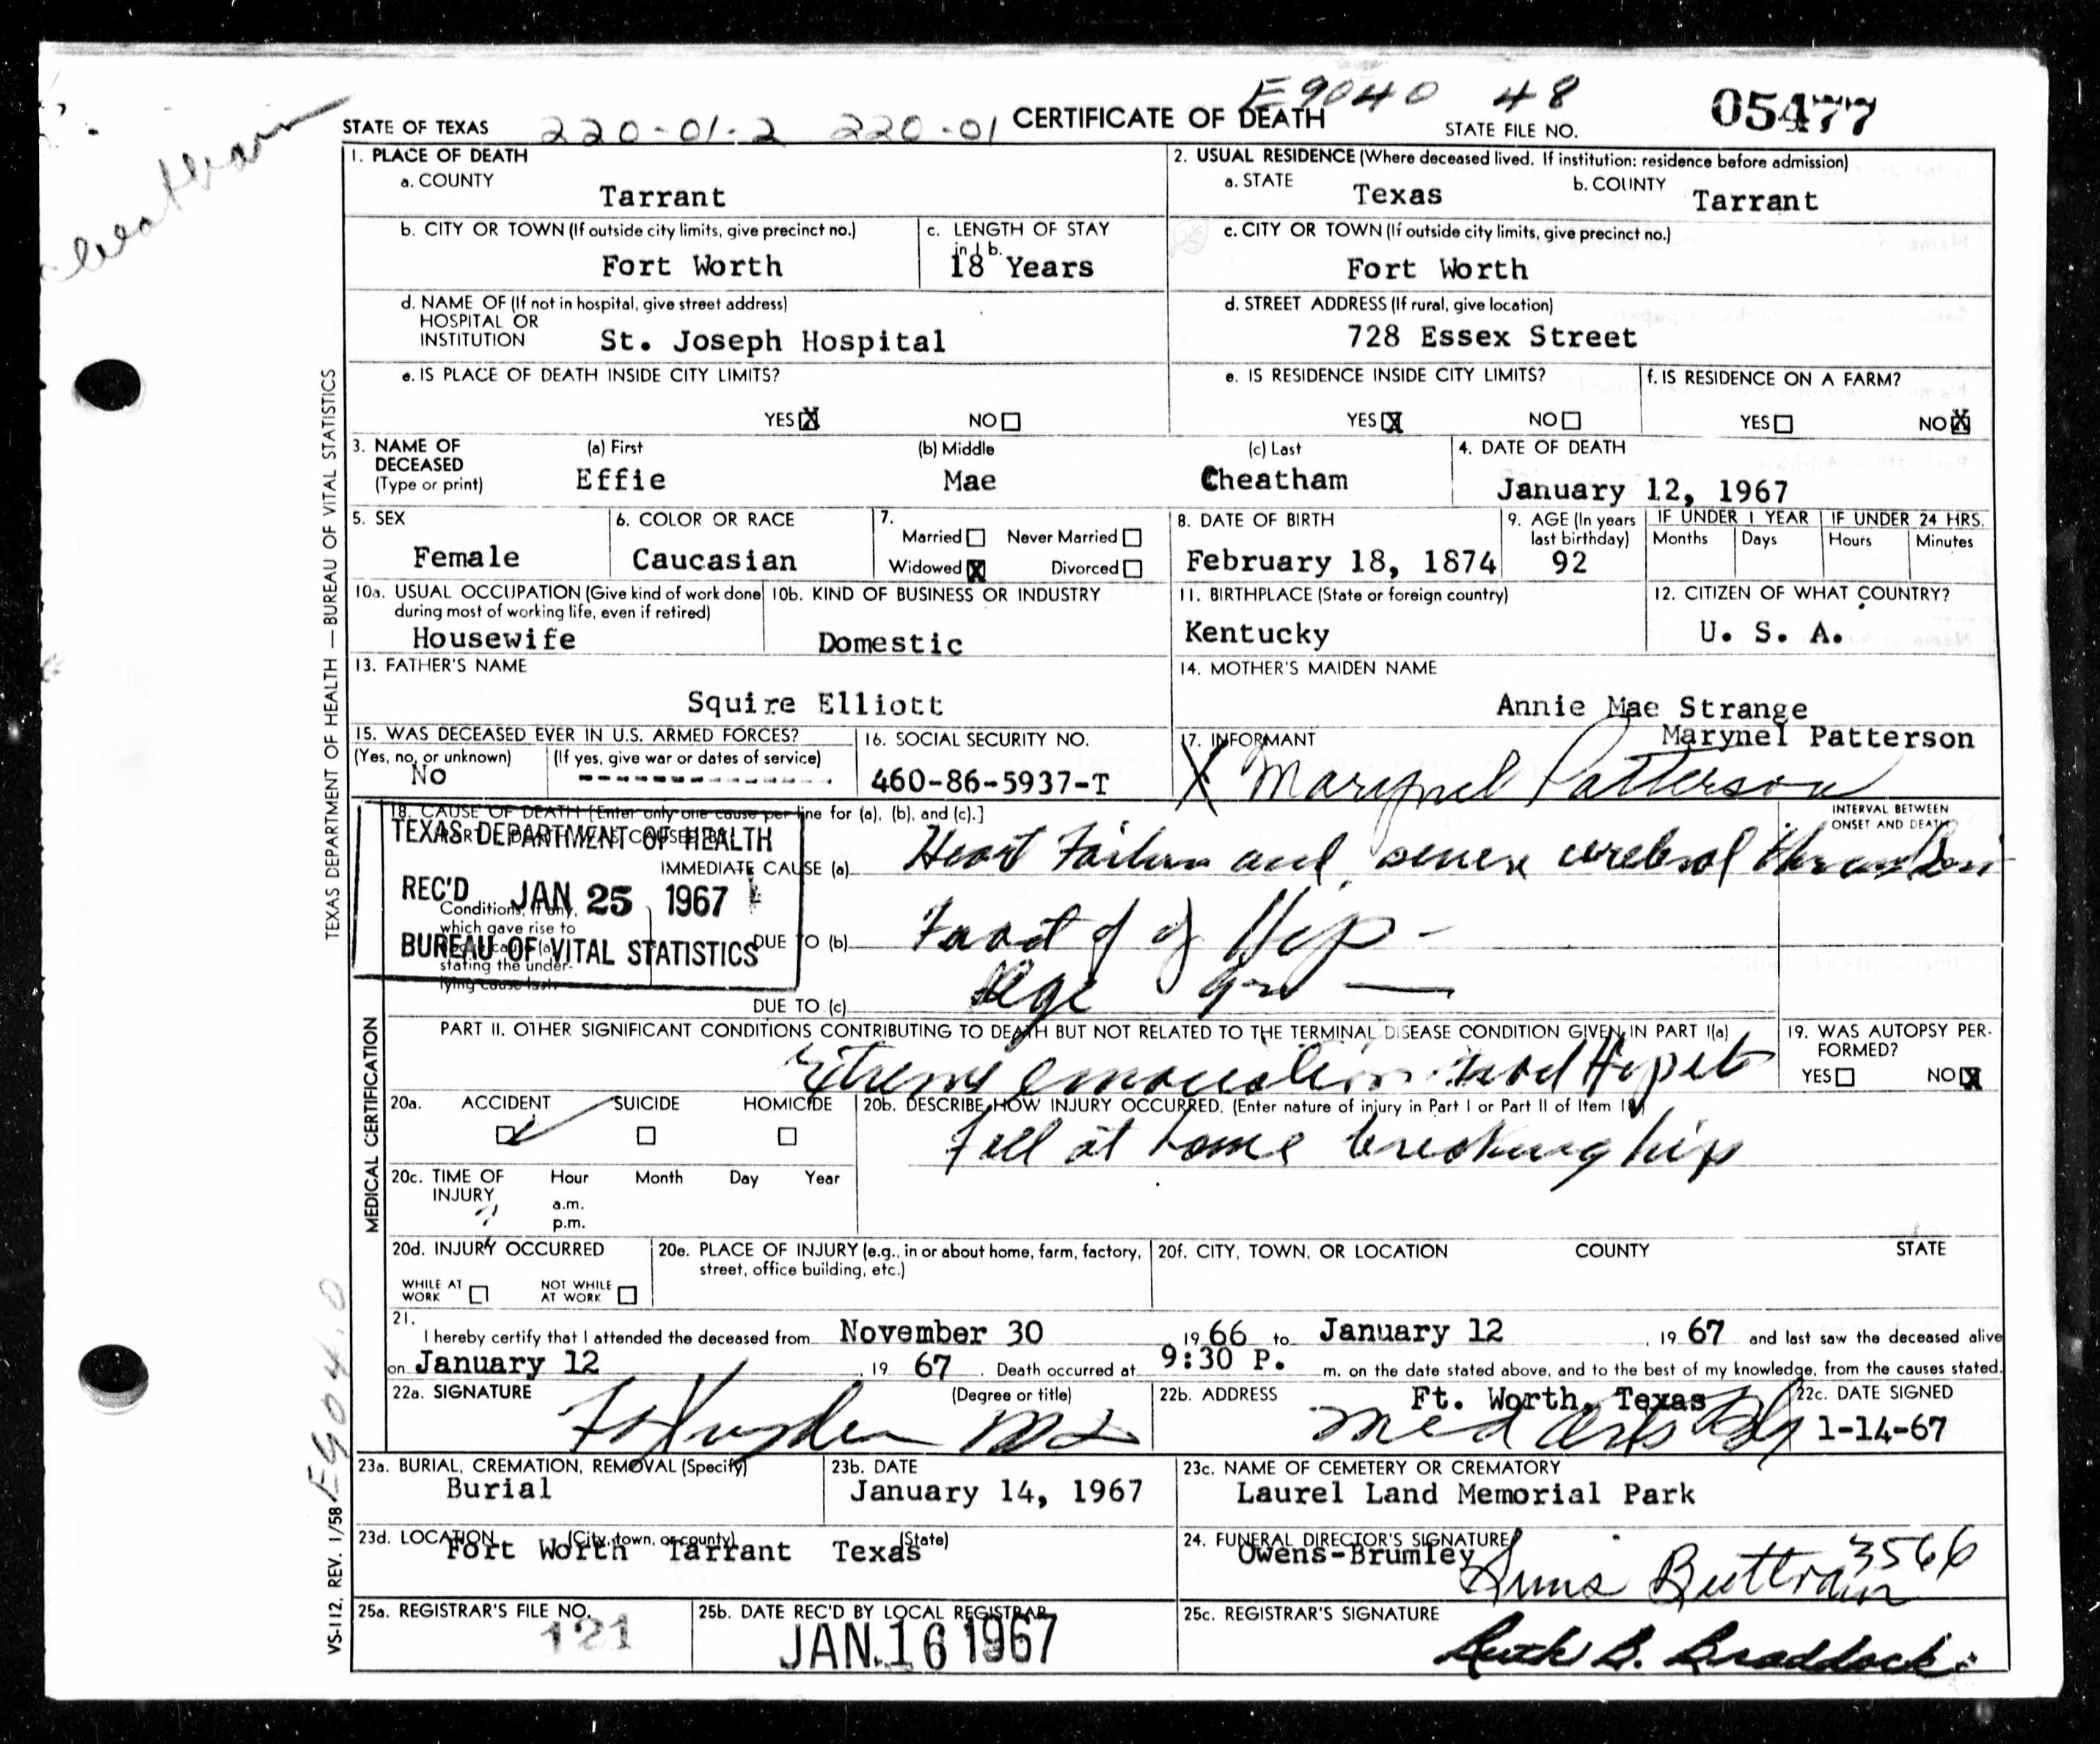 E9040 48
STATE OF TEXAS 220-01-2 220-01 CERTIFICATE OF DEATH STATE FILE NO. 05477
1. PLACE OF DEATH
a. COUNTY
Tarrant
2. USUAL RESIDENCE (Where deceased lived. If institution: residence before admission)
a. STATE Texas b. COUNTY Tarrant
b. CITY OR TOWN (If outside city limits, give precinct no.)
Fort Worth
c. LENGTH OF STAY
in 1 b.
18 Years
c. CITY OR TOWN (If outside city limits, give precinct no.)
Fort Worth
d. NAME OF (If not in hospital, give street address)
HOSPITAL OR
INSTITUTION St. Joseph Hospital
d. STREET ADDRESS (If rural, give location)
728 Essex Street
e. IS PLACE OF DEATH INSIDE CITY LIMITS?
YES X NO
e. IS RESIDENCE INSIDE CITY LIMITS?
YES X NO
f. IS RESIDENCE ON A FARM?
YES NO X
3. NAME OF
DECEASED
(Type or print)
(a) First
Effie
(b) Middle
Mae
(c) Last
Cheatham
4. DATE OF DEATH
January 12, 1967
5. SEX
Female
6. COLOR OR RACE
Caucasian
7.
Married Never Married
Widowed X Divorced
8. DATE OF BIRTH
February 18, 1874
9. AGE (In years
last birthday)
92
IF UNDER 1 YEAR
Months Days
IF UNDER 24 HRS.
Hours Minutes
10a. USUAL OCCUPATION (Give kind of work done
during most of working life, even if retired)
Housewife
10b. KIND OF BUSINESS OR INDUSTRY
Domestic
11. BIRTHPLACE (State or foreign country)
Kentucky
12. CITIZEN OF WHAT COUNTRY?
U. S. A.
13. FATHER'S NAME
Squire Elliott
14. MOTHER'S MAIDEN NAME
Annie Mae Strange
15. WAS DECEASED EVER IN U.S. ARMED FORCES?
(Yes, no, or unknown) (If yes, give war or dates of service)
No
16. SOCIAL SECURITY NO.
460-86-5937-T
17. INFORMANT Marynel Patterson
X Marynel Patterson
18. CAUSE OF DEATH [Enter only one cause per line for (a), (b), and (c).]
INTERVAL BETWEEN
ONSET AND DEATH
TEXAS DEPARTMENT OF HEALTH
REC'D JAN 25 1967
BUREAU OF VITAL STATISTICS
IMMEDIATE CAUSE (a) Heart Failure and severe cerebral
Conditions, if any,
which gave rise to
stating the under-
lying cause last.
DUE TO (b) of Hip -
DUE TO (c) Age
PART II. OTHER SIGNIFICANT CONDITIONS CONTRIBUTING TO DEATH BUT NOT RELATED TO THE TERMINAL DISEASE CONDITION GIVEN IN PART I(a)
Extreme emaciation
19. WAS AUTOPSY PER-
FORMED?
YES NO X
20a. ACCIDENT SUICIDE HOMICIDE
20b. DESCRIBE HOW INJURY OCCURRED. (Enter nature of injury in Part I or Part II of Item 18)
fell at home breaking hip
20c. TIME OF
INJURY
Hour Month Day Year
a.m.
p.m.
20d. INJURY OCCURRED
WHILE AT
WORK
NOT WHILE
AT WORK
20e. PLACE OF INJURY (e.g., in or about home, farm, factory,
street, office building, etc.)
20f. CITY, TOWN, OR LOCATION COUNTY STATE
21.
I hereby certify that I attended the deceased from November 30 19 66 to January 12, 19 67 and last saw the deceased alive
on January 12, 19 67. Death occurred at 9:30 P. m. on the date stated above, and to the best of my knowledge, from the causes stated.
22a. SIGNATURE (Degree or title)
MD
22b. ADDRESS Ft. Worth, Texas
Med Arts Bldg
22c. DATE SIGNED
1-14-67
23a. BURIAL, CREMATION, REMOVAL (Specify)
Burial
23b. DATE
January 14, 1967
23c. NAME OF CEMETERY OR CREMATORY
Laurel Land Memorial Park
23d. LOCATION (City, town, or county) (State)
Fort Worth Tarrant Texas
24. FUNERAL DIRECTOR'S SIGNATURE
Owens-Brumley
Buttram 3566
25a. REGISTRAR'S FILE NO.
121
25b. DATE REC'D BY LOCAL REGISTRAR
JAN. 16 1967
25c. REGISTRAR'S SIGNATURE
Ruth B. Braddock
TEXAS DEPARTMENT OF HEALTH — BUREAU OF VITAL STATISTICS
MEDICAL CERTIFICATION
VS-112, REV. 1/58
E904.0